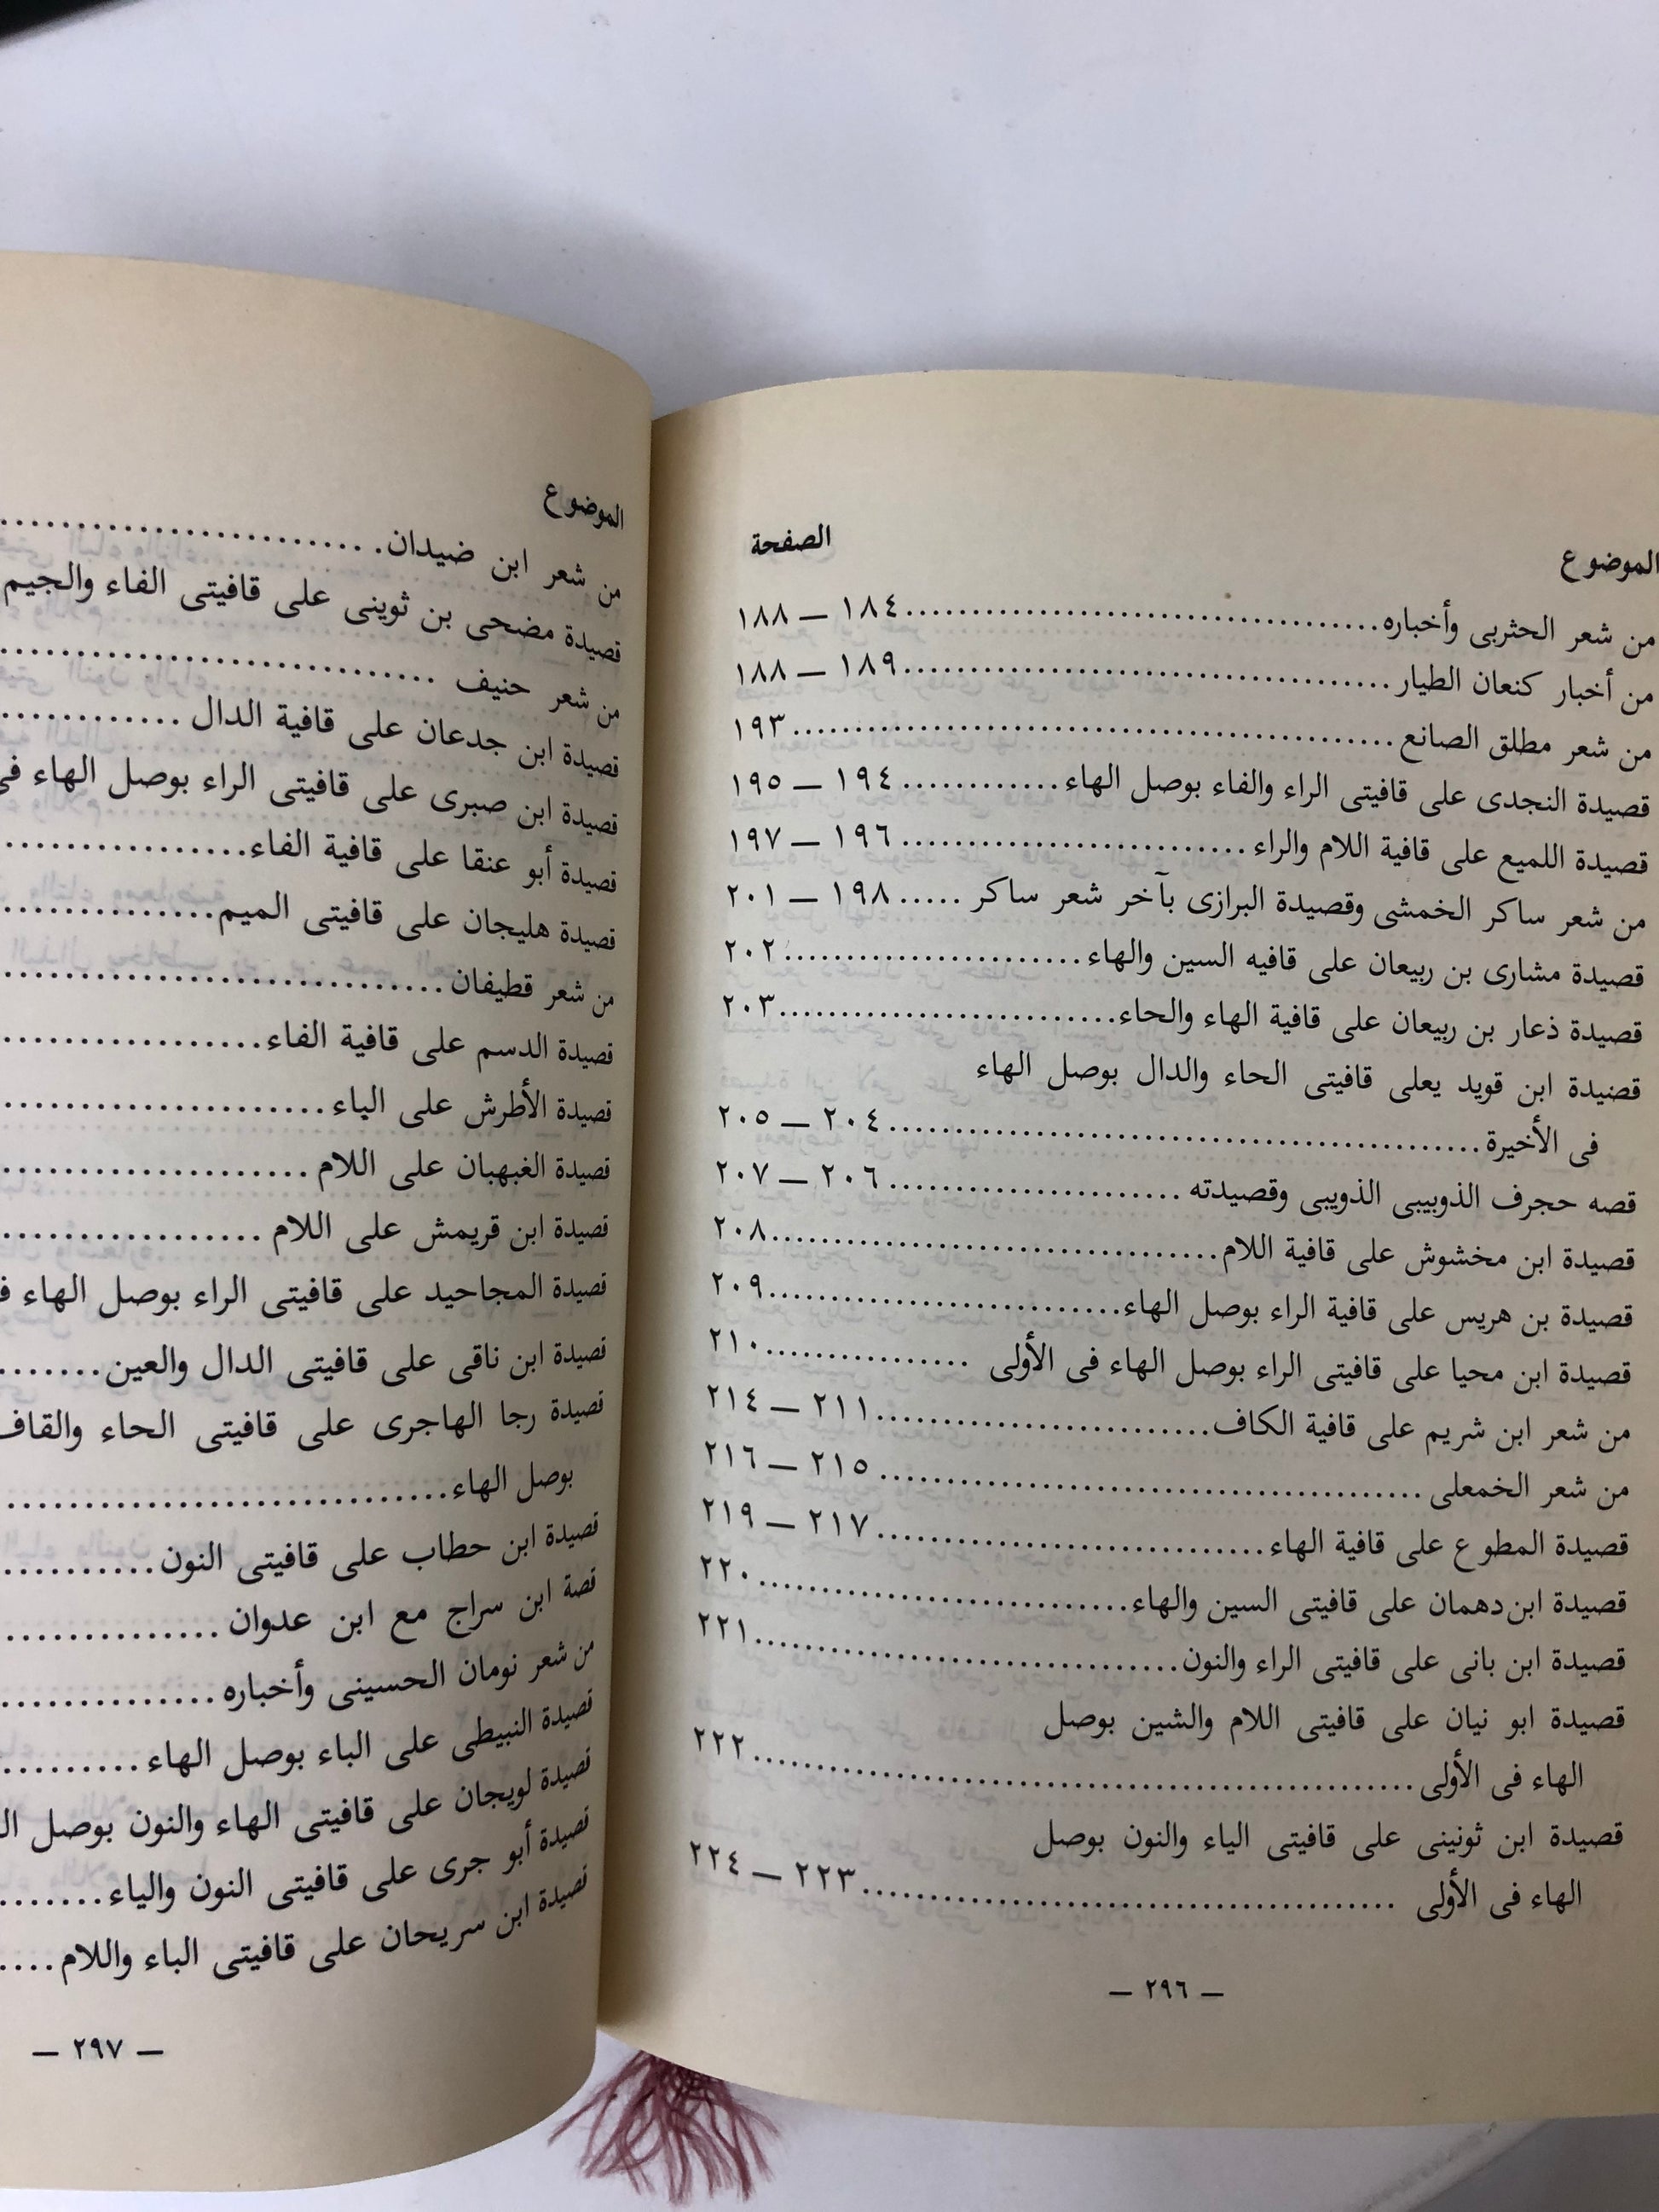 الموضوع الصفحة
من شعر الحثربى وأخباره ........ ١٨٤ — ١٨٨
من أخبار كنعان الطيار ........ ١٨٩ — ١٨٨
من شعر مطلق الصانع ........ ١٩٣
قصيدة النجدى على قافيتى الراء والفاء بوصل الهاء ........ ١٩٤ — ١٩٥
قصيدة اللميع على قافية اللام والراء ........ ١٩٦ — ١٩٧
من شعر ساكر الخمشى وقصيدة البرازى بآخر شعر ساكر ..... ١٩٨ — ٢٠١
قصيدة مشارى بن ربيعان على قافيه السين والهاء ........ ٢٠٢
قصيدة ذعار بن ربيعان على قافية الهاء والحاء ........ ٢٠٣
قضيدة ابن قويد يعلى قافيتى الحاء والدال بوصل الهاء
فى الأخيرة ........ ٢٠٤ — ٢٠٥
قصه حجرف الذوبيبى الذويبى وقصيدته ........ ٢٠٦ — ٢٠٧
قصيدة ابن مخشوش على قافية اللام ........ ٢٠٨
قصيدة بن هريس على قافية الراء بوصل الهاء ........ ٢٠٩
قصيدة ابن محيا على قافيتى الراء بوصل الهاء فى الأولى ........ ٢١٠
من شعر ابن شريم على قافية الكاف ........ ٢١١ — ٢١٤
من شعر الخمعلى ........ ٢١٥ — ٢١٦
قصيدة المطوع على قافية الهاء ........ ٢١٧ — ٢١٩
قصيدة ابن دهمان على قافيتى السين والهاء ........ ٢٢٠
قصيدة ابن بانى على قافيتى الراء والنون ........ ٢٢١
قصيدة ابو نيان على قافيتى اللام والشين بوصل
الهاء فى الأولى ........ ٢٢٢
قصيدة ابن ثونينى على قافيتى الياء والنون بوصل
الهاء فى الأولى ........ ٢٢٣ — ٢٢٤
— ٢٩٦ —
الموضوع
من شعر ابن ضيدان ........
قصيدة مضحى بن ثوينى على قافيتى الفاء والجيم
من شعر حنيف ........
قصيدة ابن جدعان على قافية الدال ........
قصيدة ابن صبرى على قافيتى الراء بوصل الهاء فى
قصيدة أبو عنقا على قافية الفاء ........
قصيدة هليجان على قافيتى الميم ........
من شعر قطيفان ........
قصيدة الدسم على قافية الفاء ........
قصيدة الأطرش على الياء ........
قصيدة الغبهبان على اللام ........
قصيدة ابن قريمش على اللام ........
قصيدة المجاحيد على قافيتى الراء بوصل الهاء
قصيدة ابن ناقى على قافيتى الدال والعين ........
قصيدة رجا الهاجرى على قافيتى الحاء والقاف
بوصل الهاء ........
قصيدة ابن حطاب على قافيتى النون ........
قصة ابن سراج مع ابن عدوان ........
من شعر نومان الحسينى وأخباره ........
قصيدة النبيطى على الباء بوصل الهاء ........
قصيدة لويجان على قافيتى الهاء والنون بوصل
قصيدة أبو جرى على قافيتى النون والياء ........
قصيدة ابن سريحان على قافيتى الباء واللام ....
— ٢٩٧ —